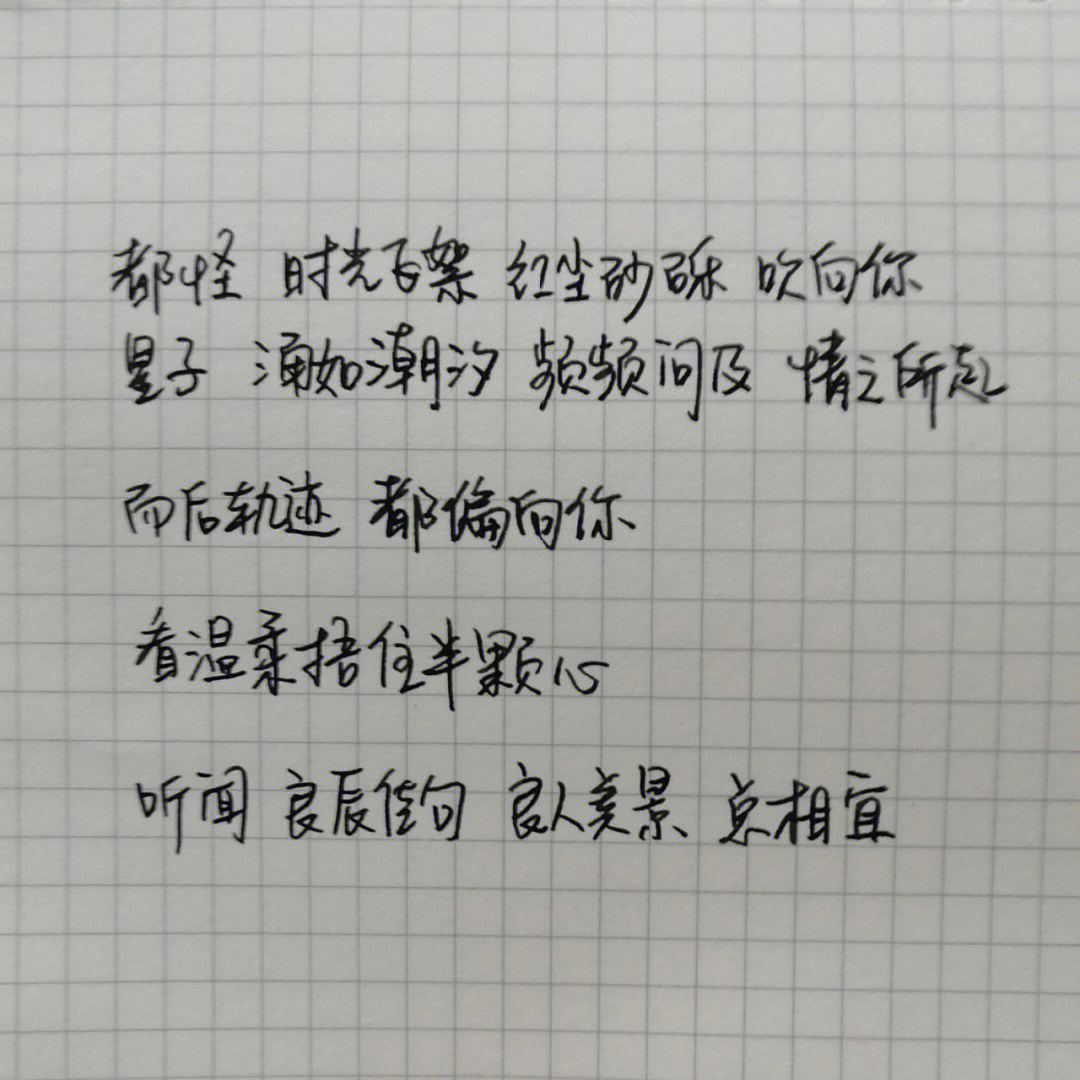 都怪 时光飞絮 红尘砂砾 吹向你
星子 涌如潮汐 频频问及 情之所起
而后轨迹 都偏向你
看温柔捂住半颗心
听闻 良辰佳句 良人美景 总相宜